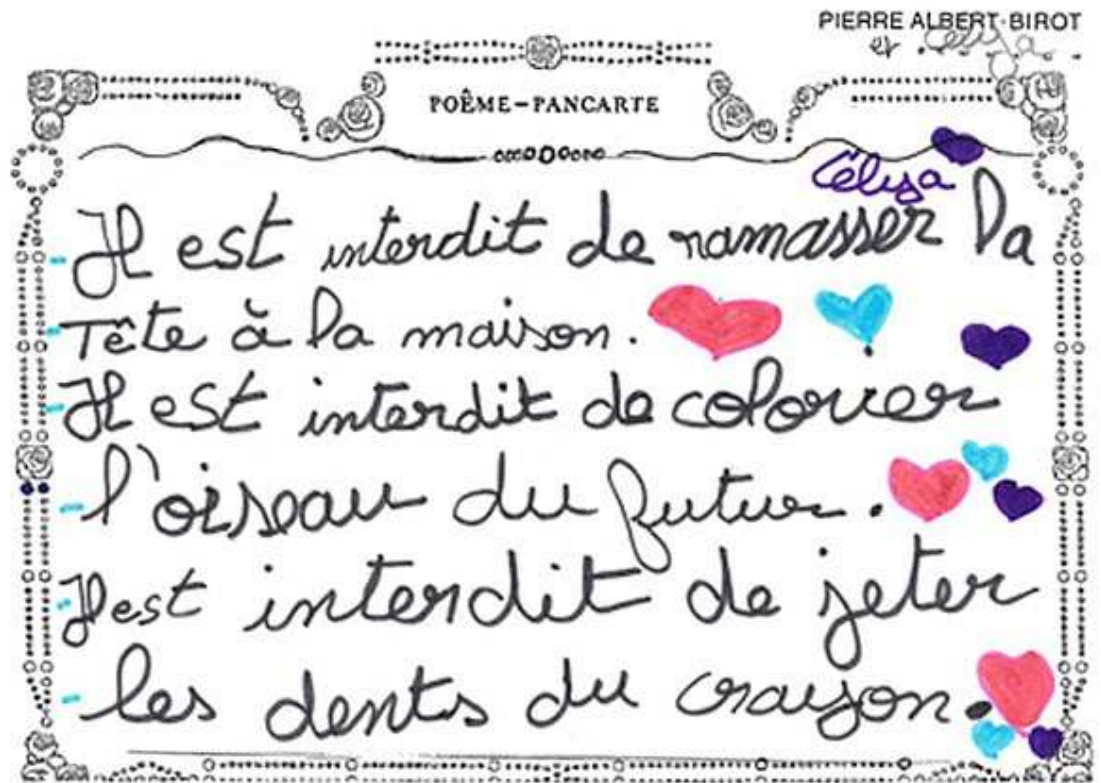 PIERRE ALBERT-BIROT
et
POÊME-PANCARTE
Célya
- Il est interdit de ramasser la
- Tête à la maison.
- Il est interdit de colorier
- l'oiseau du futur.
- Il est interdit de jeter
- les dents du crayon.